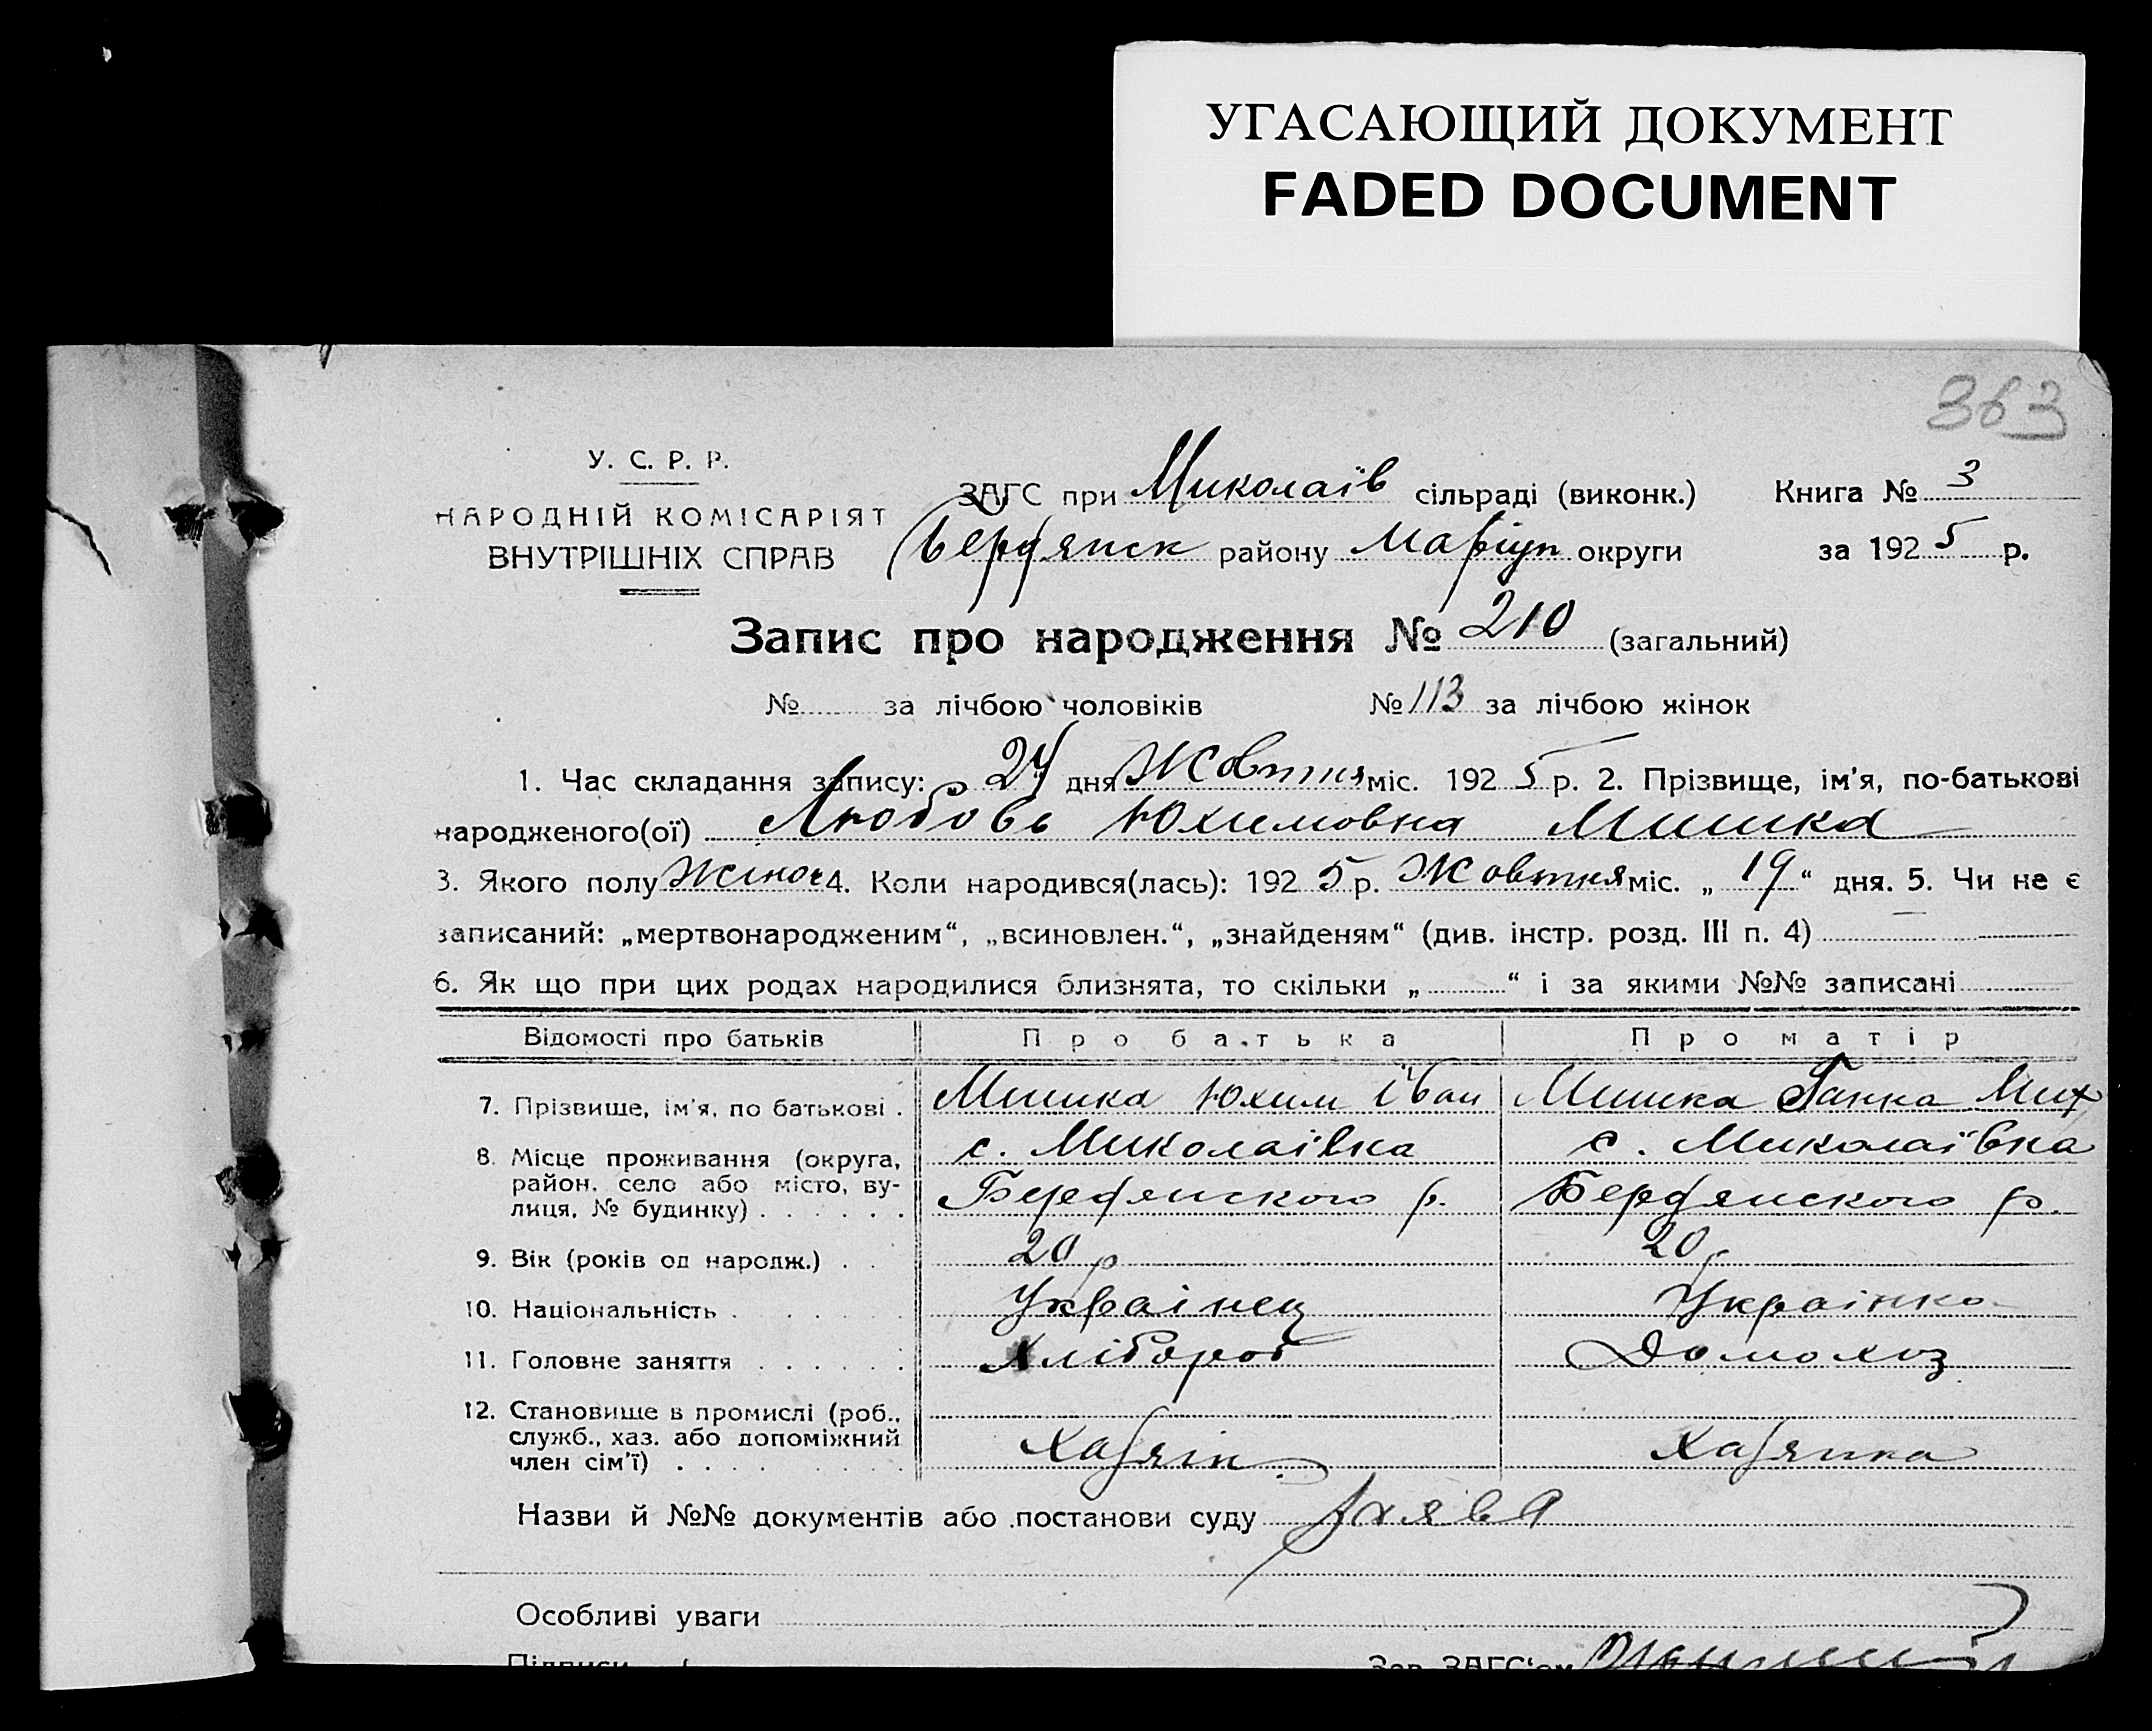 УГАСАЮЩИЙ ДОКУМЕНТ
FADED DOCUMENT
363
У. С. Р. Р.
НАРОДНІЙ КОМІСАРІЯТ
ВНУТРІШНІХ СПРАВ
ЗАГС при Миколаїв сільраді (виконк.) Книга № 3
Бердянск району Маріуп округи за 1925 р.
Запис про народження № 210 (загальний)
№ за лічбою чоловіків № 113 за лічбою жінок
1. Час складання запису: 24 дня Жовтня міс. 1925 р. 2. Прізвище, ім'я, по-батькові
народженого(ої) Любовь Юхимовна Мишка
3. Якого полу Жіноч 4. Коли народився(лась): 1925 р. Жовтня міс. „ 19 “ дня. 5. Чи не є
записаний: „мертвонародженим“, „всиновлен.“, „знайденям“ (див. інстр. розд. III п. 4) —
6. Як що при цих родах народилися близнята, то скільки „ “ і за якими №№ записані
Відомості про батьків Про батька Про матір
7. Прізвище, ім'я, по батькові . Мишка Юхим Іван Мишка Ганна Мих
8. Місце проживання (округа, район, село або місто, вулиця, № будинку) . с. Миколаївка Бердянского р. с. Миколаївка Бердянского р.
9. Вік (років од народж.) . . 20 р 20 р
10. Національність . Українец Українка
11. Головне заняття . Хлібороб Домохоз
12. Становище в промислі (роб., служб., хаз. або допоміжний член сім'ї) . Хазяін Хазяика
Назви й №№ документів або постанови суду Заява
Особливі уваги
Підписи
Зав. ЗАГС'ом